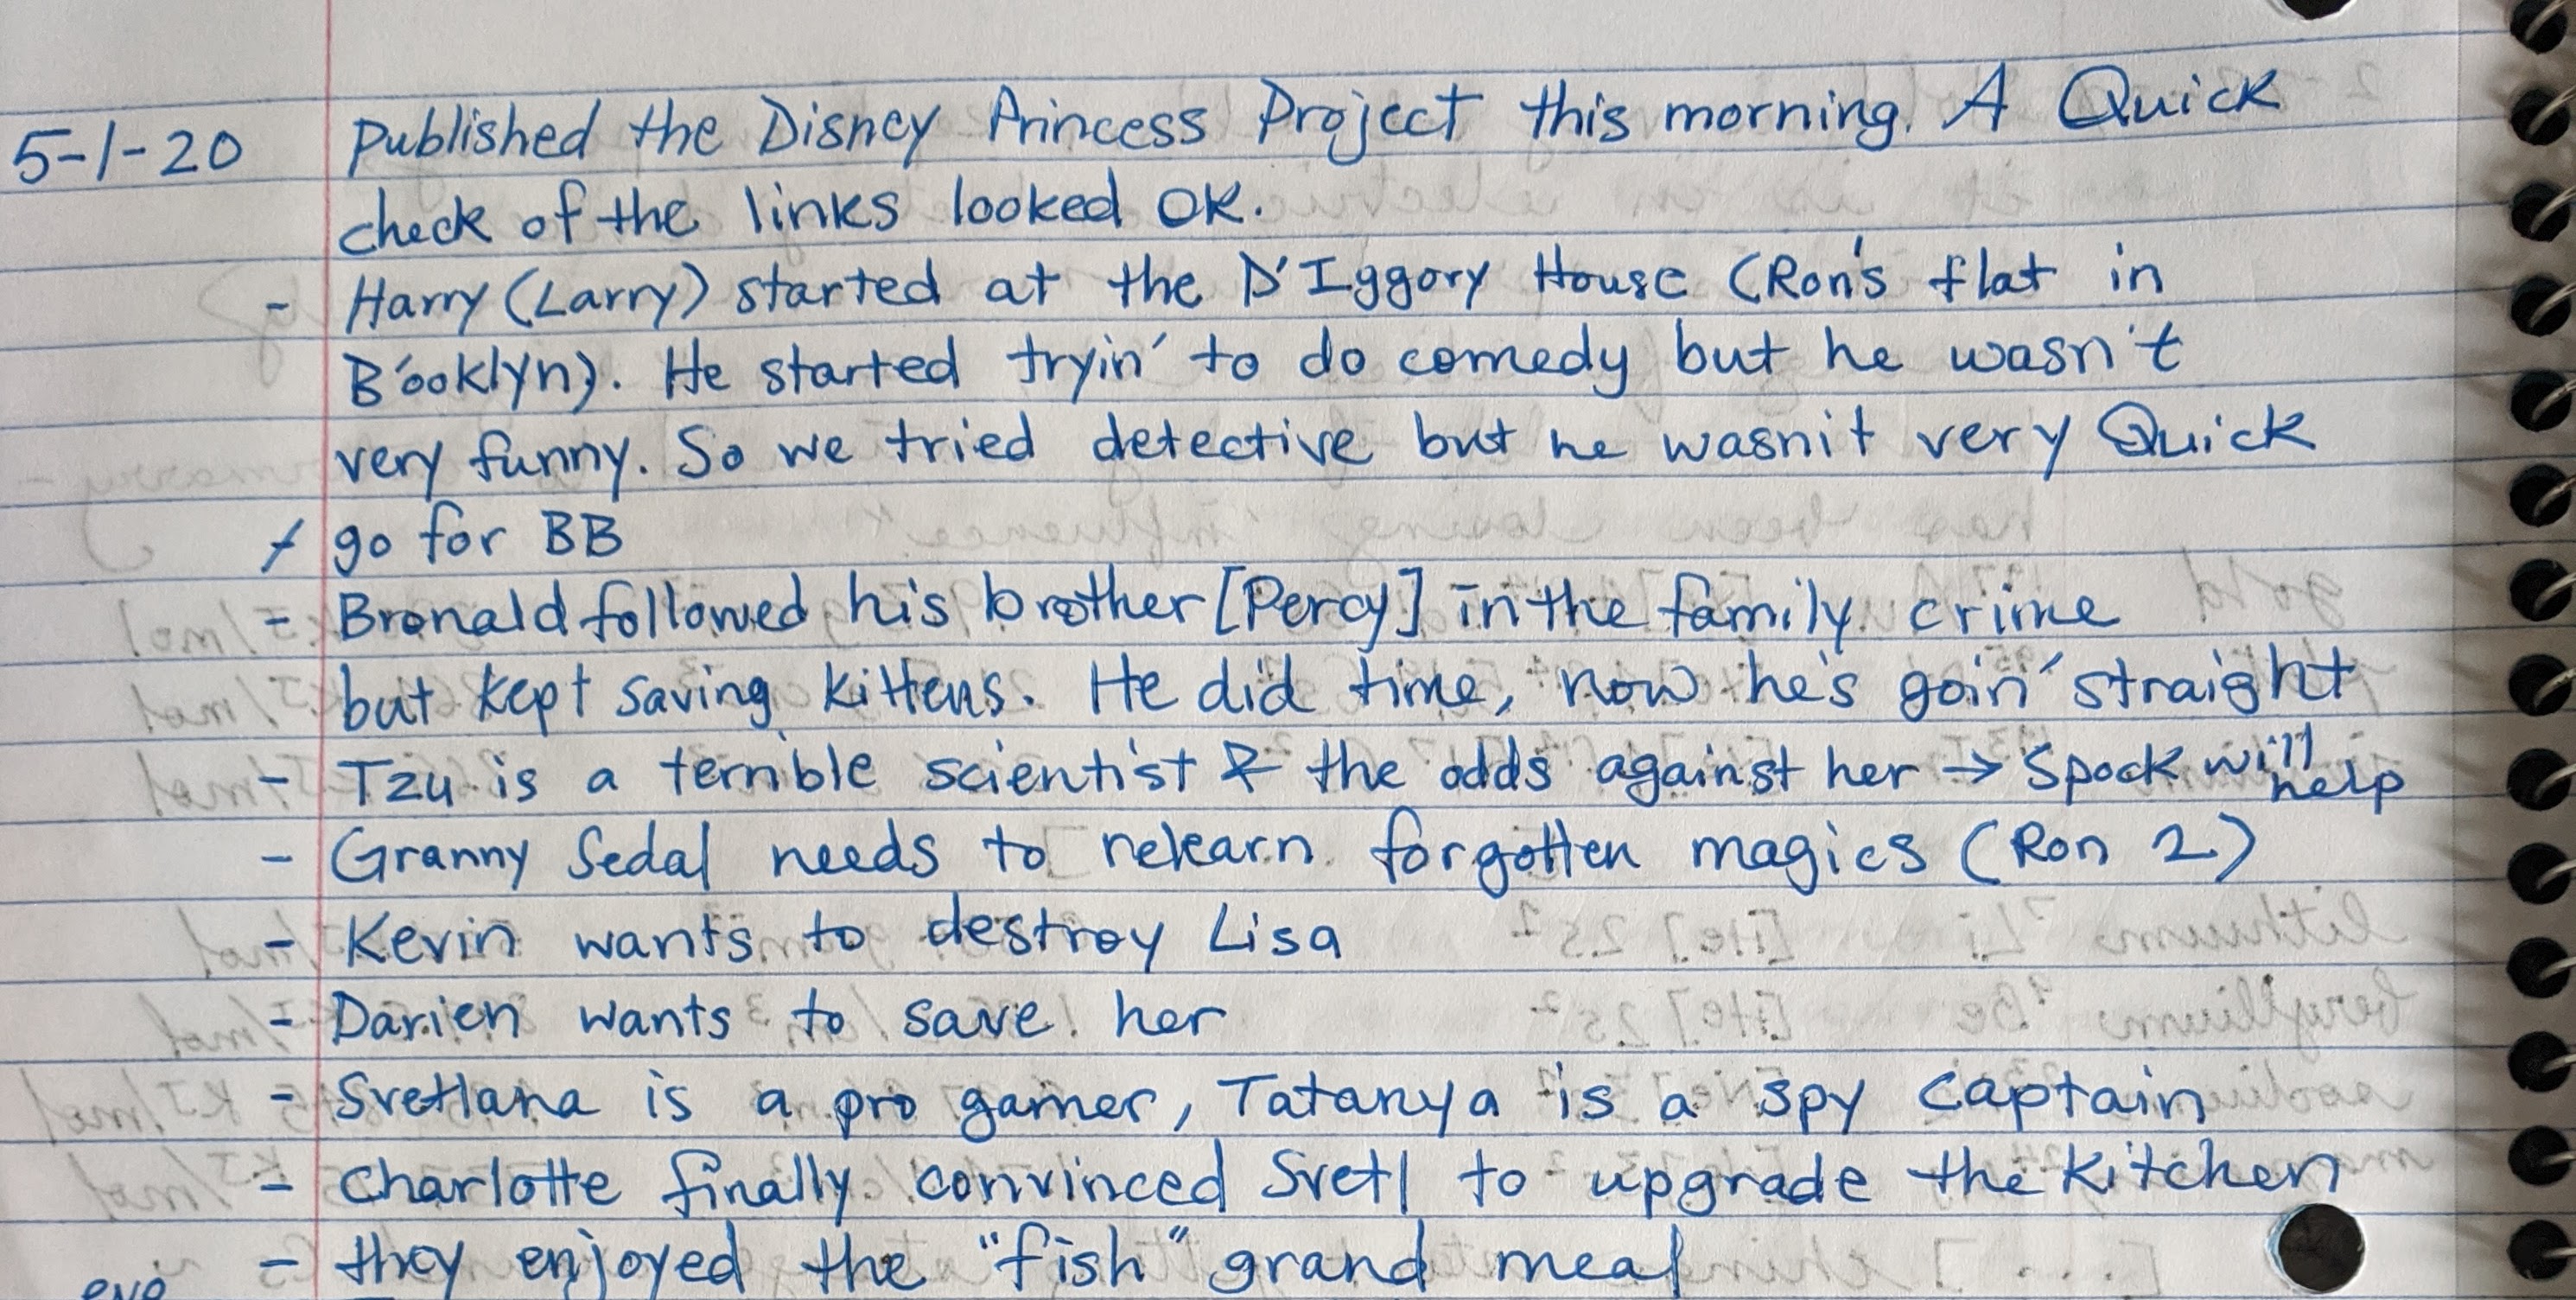 5-1-20 Published the Disney Princess Project this morning. A Quick
check of the links looked OK.
- Harry (Larry) started at the D'Iggory House (Ron's flat in
B'ooklyn). He started tryin' to do comedy but he wasn't
very funny. So we tried detective but he wasnit very Quick
go for BB
- Bronald followed his brother [Percy] in the family crime
but kept saving kittens. He did time, now he's goin' straight
- Tzu is a terrible scientist & the odds against her → Spock will help
- Granny Sedal needs to relearn forgotten magics (Ron 2)
- Kevin wants to destroy Lisa
- Darien wants to save her
- Svetlana is a pro gamer, Tatanya is a spy captain
- Charlotte finally convinced Svetl to upgrade the kitchen
- they enjoyed the "fish" grand meal
eve